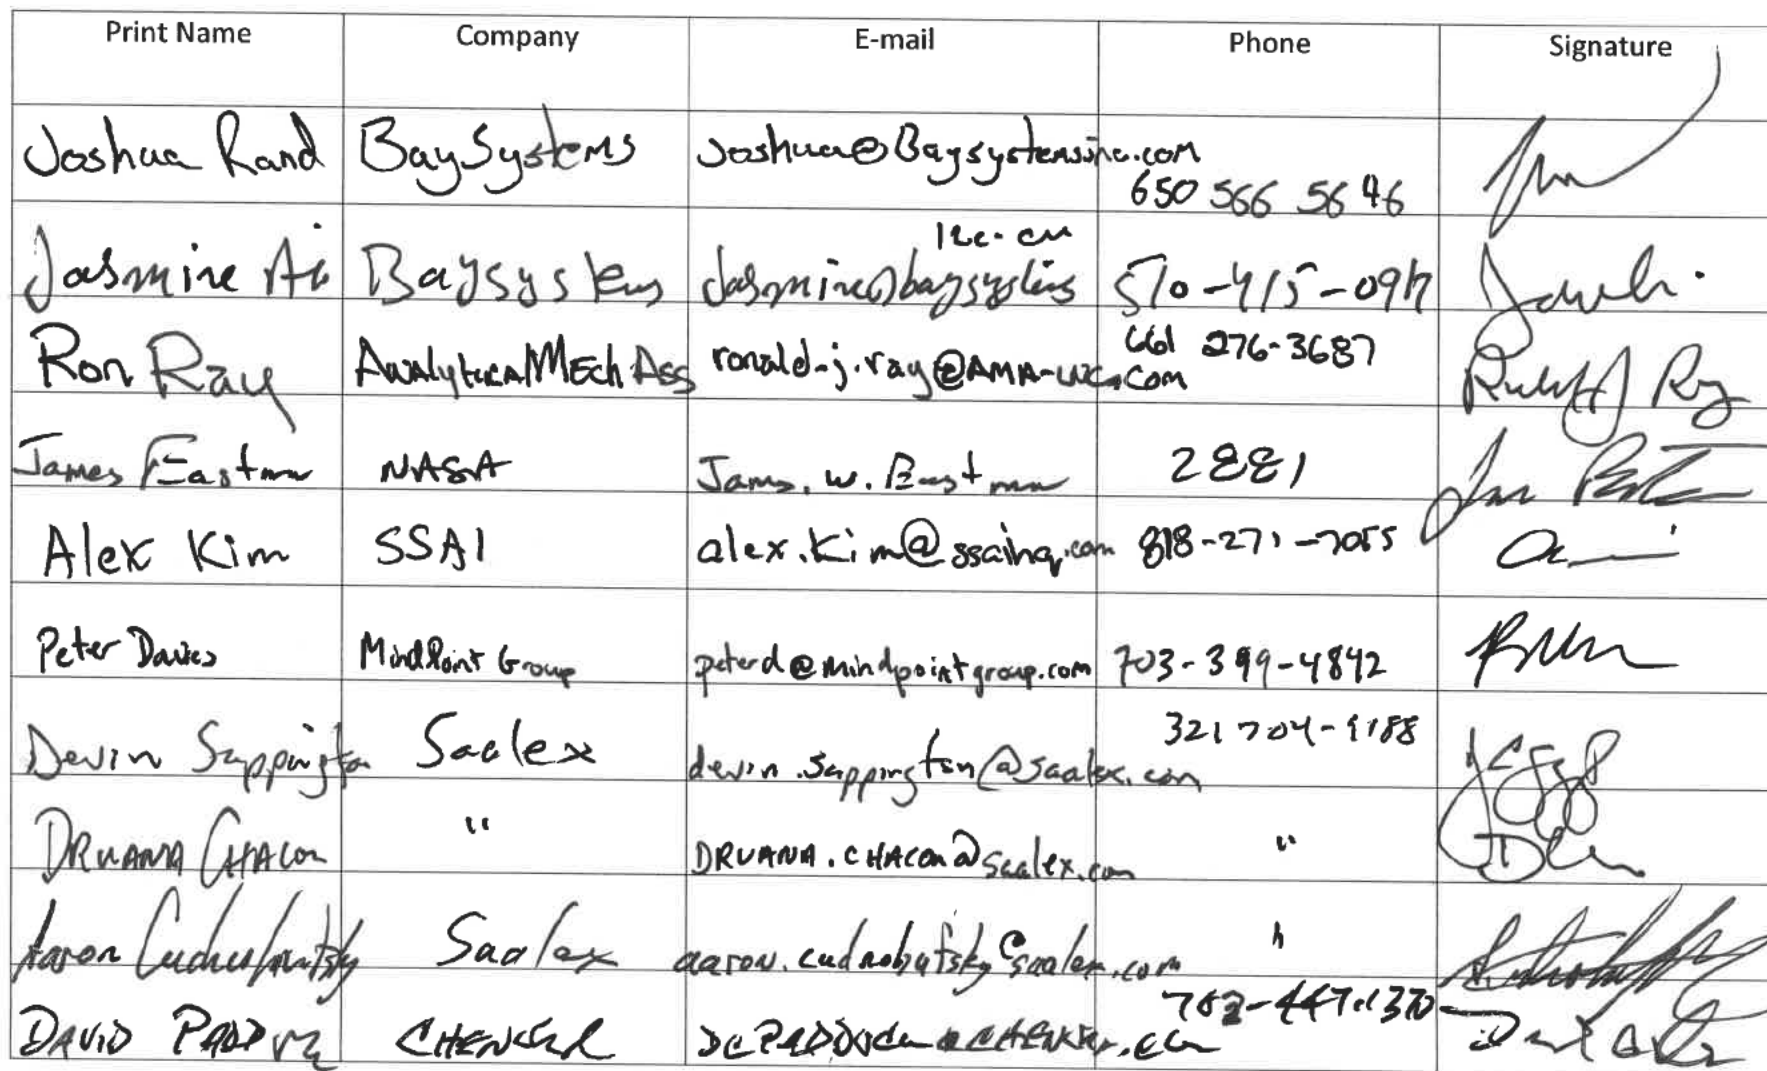 Print Name Company E-mail Phone Signature
Joshua Rand BaySystems Joshua@Baysystemsinc.com 650 566 5646
Jasmine Ai Baysystems Jasmine@baysystems 510-415-
Ron Ray Analytical Mech Ass ronald.j.ray@AMA-inc.com 661 276-3687
James Eastman NASA James.w.Eastman 2881
Alex Kim SSAI alex.kim@ssaihq.com 818-271-7055
Peter Davies MindPoint Group peterd@mindpointgroup.com 703-399-4842
Devin Sappington Saalex devin.sappington@saalex.com 321 704-9188
DRUANA CHACON " DRUANA.CHACON@saalex.com "
Aaron Saalex "
DAVID